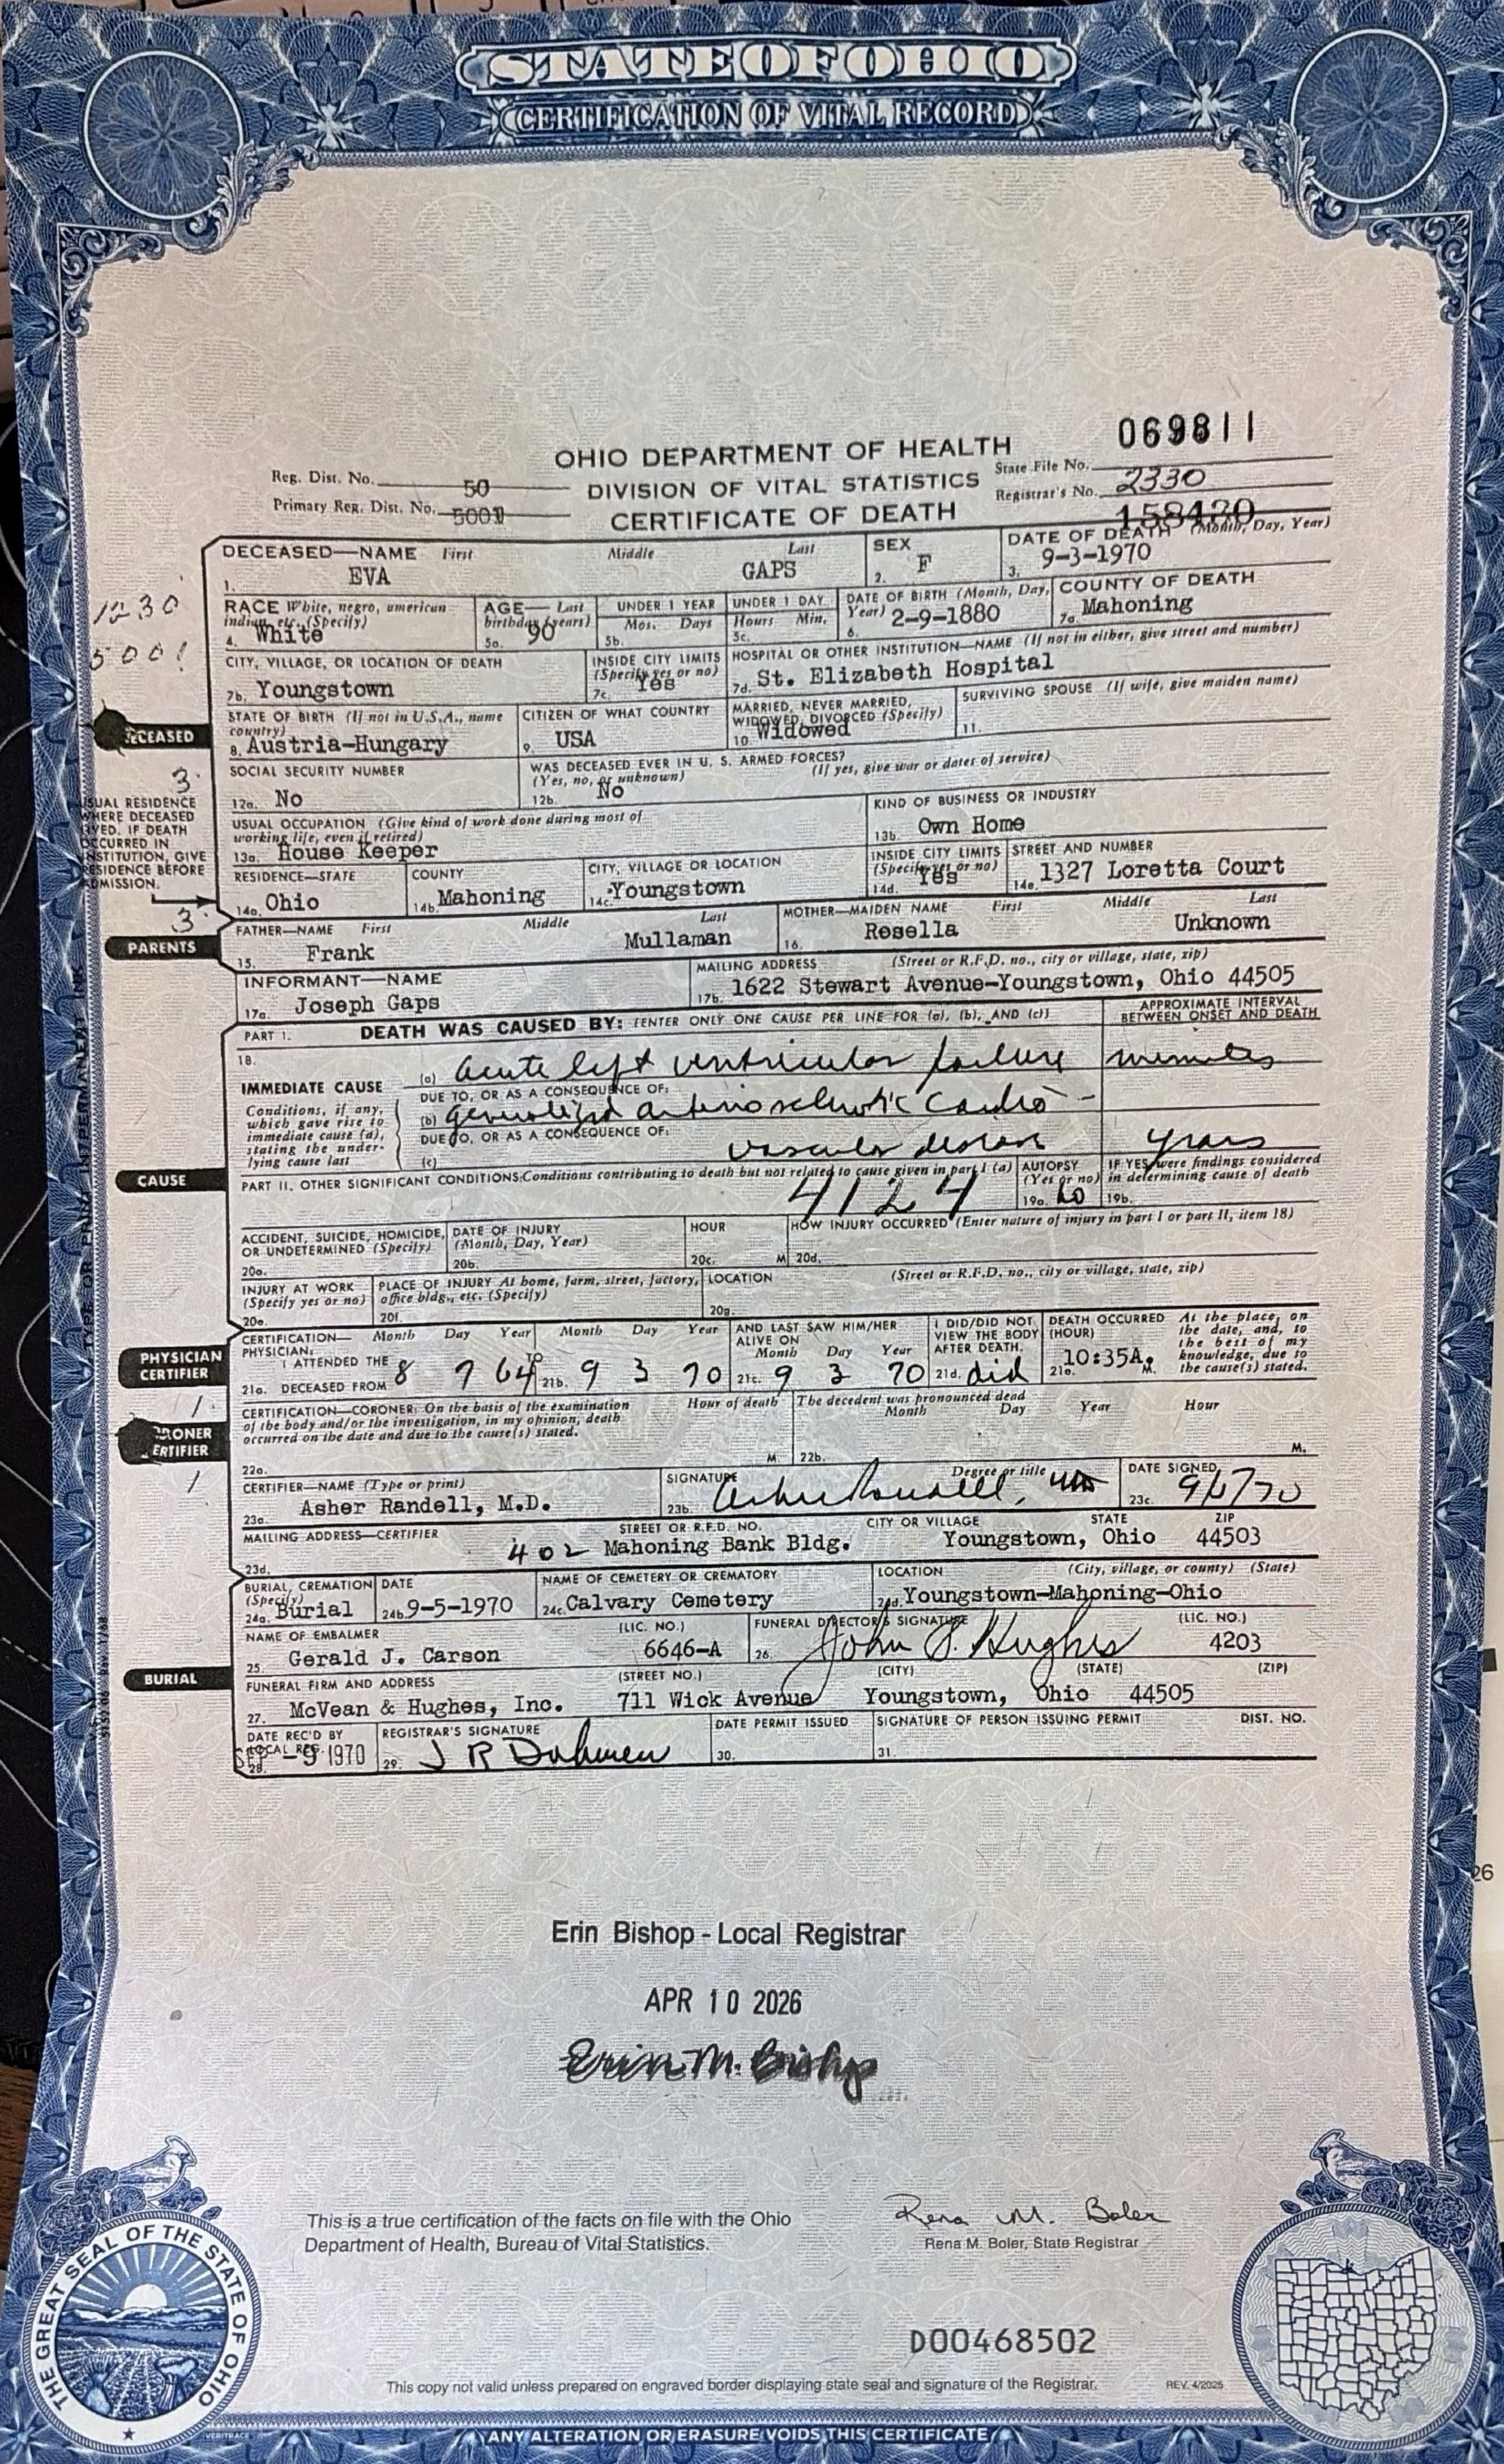 STATE OF OHIO
CERTIFICATION OF VITAL RECORD
069811
OHIO DEPARTMENT OF HEALTH
DIVISION OF VITAL STATISTICS
CERTIFICATE OF DEATH
Reg. Dist. No. 50
Primary Reg. Dist. No. 5001
State File No.
Registrar's No. 2330
158420
DECEASED—NAME First Middle Last
1. EVA GAPS
SEX
2. F
DATE OF DEATH (Month, Day, Year)
3. 9-3-1970
1230
RACE White, negro, american indian, etc. (Specify)
4. White
AGE— Last birthday (years)
5a. 90
UNDER 1 YEAR
Mos. Days
5b.
UNDER 1 DAY
Hours Min.
5c.
DATE OF BIRTH (Month, Day, Year)
6. 2-9-1880
COUNTY OF DEATH
7a. Mahoning
CITY, VILLAGE, OR LOCATION OF DEATH
7b. Youngstown
INSIDE CITY LIMITS (Specify yes or no)
7c. Yes
HOSPITAL OR OTHER INSTITUTION—NAME (If not in either, give street and number)
7d. St. Elizabeth Hospital
DECEASED
STATE OF BIRTH (If not in U.S.A., name country)
8. Austria-Hungary
CITIZEN OF WHAT COUNTRY
9. USA
MARRIED, NEVER MARRIED, WIDOWED, DIVORCED (Specify)
10. Widowed
SURVIVING SPOUSE (If wife, give maiden name)
11.
3.
SOCIAL SECURITY NUMBER
12a. No
WAS DECEASED EVER IN U. S. ARMED FORCES?
(Yes, no, or unknown) (If yes, give war or dates of service)
12b. No
USUAL RESIDENCE WHERE DECEASED LIVED. IF DEATH OCCURRED IN INSTITUTION, GIVE RESIDENCE BEFORE ADMISSION.
USUAL OCCUPATION (Give kind of work done during most of working life, even if retired)
13a. House Keeper
KIND OF BUSINESS OR INDUSTRY
13b. Own Home
RESIDENCE—STATE
14a. Ohio
COUNTY
14b. Mahoning
CITY, VILLAGE OR LOCATION
14c. Youngstown
INSIDE CITY LIMITS (Specify yes or no)
14d. Yes
STREET AND NUMBER
14e. 1327 Loretta Court
3.
PARENTS
FATHER—NAME First Middle Last
15. Frank Mullaman
MOTHER—MAIDEN NAME First Middle Last
16. Rosella Unknown
INFORMANT—NAME
17a. Joseph Gaps
MAILING ADDRESS (Street or R.F.D. no., city or village, state, zip)
17b. 1622 Stewart Avenue-Youngstown, Ohio 44505
PART I. DEATH WAS CAUSED BY: [ENTER ONLY ONE CAUSE PER LINE FOR (a), (b), AND (c)]
APPROXIMATE INTERVAL BETWEEN ONSET AND DEATH
18.
IMMEDIATE CAUSE (a) acute left ventricular failure minutes
DUE TO, OR AS A CONSEQUENCE OF:
Conditions, if any, which gave rise to immediate cause (a), stating the underlying cause last
(b) generalized arteriosclerotic cardio-
DUE TO, OR AS A CONSEQUENCE OF:
(c) vascular disease years
CAUSE
PART II. OTHER SIGNIFICANT CONDITIONS: Conditions contributing to death but not related to cause given in part I (a)
4124
AUTOPSY (Yes or no)
19a. no
IF YES were findings considered in determining cause of death
19b.
ACCIDENT, SUICIDE, HOMICIDE, OR UNDETERMINED (Specify)
20a.
DATE OF INJURY (Month, Day, Year)
20b.
HOUR
20c. M
HOW INJURY OCCURRED (Enter nature of injury in part I or part II, item 18)
20d.
INJURY AT WORK (Specify yes or no)
20e.
PLACE OF INJURY At home, farm, street, factory, office bldg., etc. (Specify)
20f.
LOCATION (Street or R.F.D. no., city or village, state, zip)
20g.
PHYSICIAN CERTIFIER
CERTIFICATION— Month Day Year
PHYSICIAN:
I ATTENDED THE
21a. DECEASED FROM 8 7 64
TO
Month Day Year
21b. 9 3 70
AND LAST SAW HIM/HER ALIVE ON
Month Day Year
21c. 9 3 70
I DID/DID NOT VIEW THE BODY AFTER DEATH.
21d. did
DEATH OCCURRED (HOUR)
21e. 10:35A. M.
At the place, on the date, and, to the best of my knowledge, due to the cause(s) stated.
CORONER CERTIFIER
CERTIFICATION—CORONER: On the basis of the examination of the body and/or the investigation, in my opinion, death occurred on the date and due to the cause(s) stated.
Hour of death
22a. M.
The decedent was pronounced dead
Month Day Year Hour
22b. M.
CERTIFIER—NAME (Type or print)
23a. Asher Randell, M.D.
SIGNATURE Degree or title
23b. Asher Randell, MD
DATE SIGNED
23c.
MAILING ADDRESS—CERTIFIER STREET OR R.F.D. NO. CITY OR VILLAGE STATE ZIP
23d. 402 Mahoning Bank Bldg. Youngstown, Ohio 44503
BURIAL
BURIAL, CREMATION (Specify)
24a. Burial
DATE
24b. 9-5-1970
NAME OF CEMETERY OR CREMATORY
24c. Calvary Cemetery
LOCATION (City, village, or county) (State)
24d. Youngstown-Mahoning-Ohio
NAME OF EMBALMER (LIC. NO.)
25. Gerald J. Carson 6646-A
FUNERAL DIRECTOR'S SIGNATURE (LIC. NO.)
26. John J. Hughes 4203
FUNERAL FIRM AND ADDRESS (STREET NO.) (CITY) (STATE) (ZIP)
27. McVean & Hughes, Inc. 711 Wick Avenue Youngstown, Ohio 44505
DATE REC'D BY LOCAL REG.
28. SEP 1970
REGISTRAR'S SIGNATURE
29. J R Dahmen
DATE PERMIT ISSUED
30.
SIGNATURE OF PERSON ISSUING PERMIT DIST. NO.
31.
Erin Bishop - Local Registrar
APR 10 2026
Erin M. Bishop
This is a true certification of the facts on file with the Ohio
Department of Health, Bureau of Vital Statistics.
Rena M. Boler
Rena M. Boler, State Registrar
THE GREAT SEAL OF THE STATE OF OHIO
D00468502
This copy not valid unless prepared on engraved border displaying state seal and signature of the Registrar.
REV. 4/2025
VERITRACE
ANY ALTERATION OR ERASURE VOIDS THIS CERTIFICATE
26